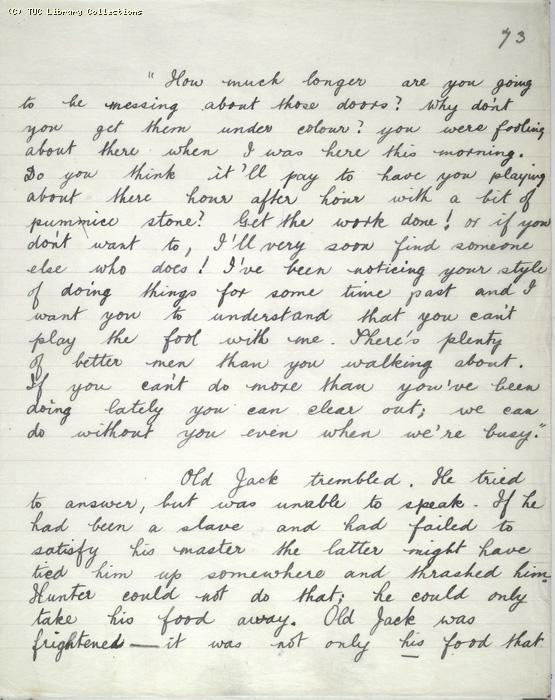 (C) TUC Library Collections
73
"How much longer are you going
to be messing about those doors? Why don't
you get them under colour? you were fooling
about there when I was here this morning.
Do you think it'll pay to have you playing
about there hour after hour with a bit of
pummice stone? Get the work done! or if you
don't want to, I'll very soon find someone
else who does! I've been noticing your style
of doing things for some time past and I
want you to understand that you can't
play the fool with me. There's plenty
of better men than you walking about.
If you can't do more than you've been
doing lately you can clear out; we can
do without you even when we're busy."
Old Jack trembled. He tried
to answer, but was unable to speak. If he
had been a slave and had failed to
satisfy his master the latter might have
tied him up somewhere and thrashed him
Hunter could not do that; he could only
take his food away. Old Jack was
frightened — it was not only his food that